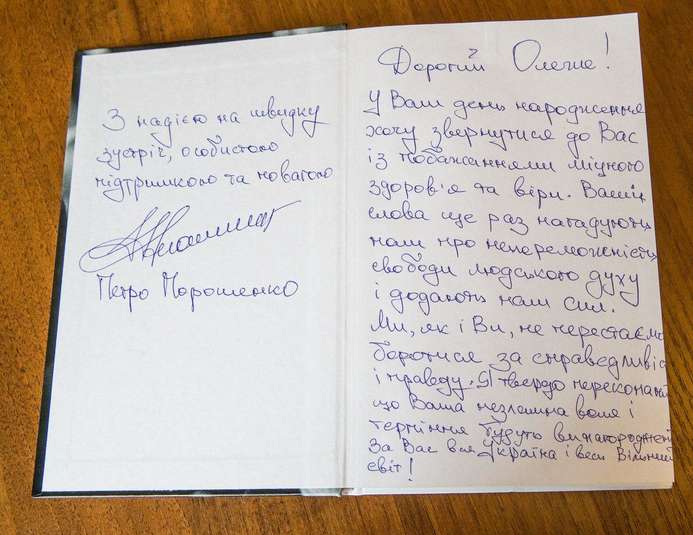 З надією на швидку
зустріч, особистою
підтримкою та повагою
Петро Порошенко
Дорогий Олегже!
У Ваш день народження
хочу звернутися до Вас
із побажаннями міцного
здоров'я та віри. Ваші
слова ще раз нагадують
нам про непереможність
свободи людського духу
і додають нам сил.
Ми, як і Ви, не перестаємо
боротися за справедливість
і правду. Я твердо переконаний
що Ваша незламна воля і
терпіння будуть винагороджені
За Вас вся Україна і весь Вільний
світ!